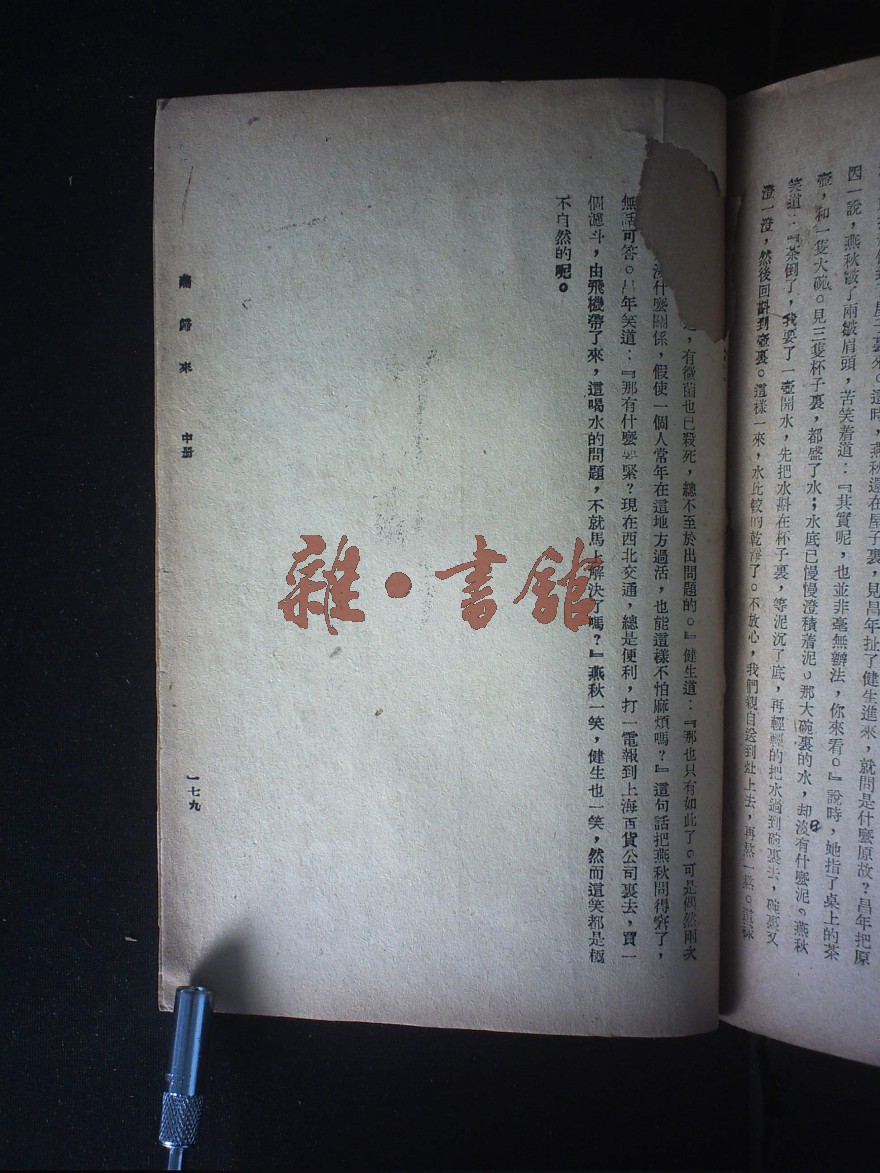 因一說,燕秋皺了兩皺眉頭,苦笑着道:『其實呢,也並非毫無辦法,你來看。』說時,她指了桌上的茶
壺,和一隻大碗。見三隻杯子裏,都盛了水;水底已慢慢澄積着泥。那大碗裏的水,却沒有什麼泥。燕秋
笑道:『茶倒了,我要了一壺開水,先把水斟在杯子裏,等泥沉了底,再輕輕的把水過到碗裏去,碗裏又
澄一澄,然後回斟到壺裏。這樣一來,水比較的乾淨了。不放心,我們親自送到灶上去,再熬一熬。這樣
,有微菌也已殺死,總不至於出問題的。』健生道:『那也只有如此了。可是偶然兩次
什麼關係,假使一個人常年在這地方過活,也能這樣不怕麻煩嗎?』這句話把燕秋問得窘了,
無話可答。昌年笑道:『那有什麼要緊?現在西北交通,總是便利,打一電報到上海百貨公司裏去,買一
個濾斗,由飛機帶了來,這喝水的問題,不就馬上解決了嗎?』燕秋一笑,健生也一笑,然而這笑都是極
不自然的呢。
燕歸來 中册
一七九
雜·書館